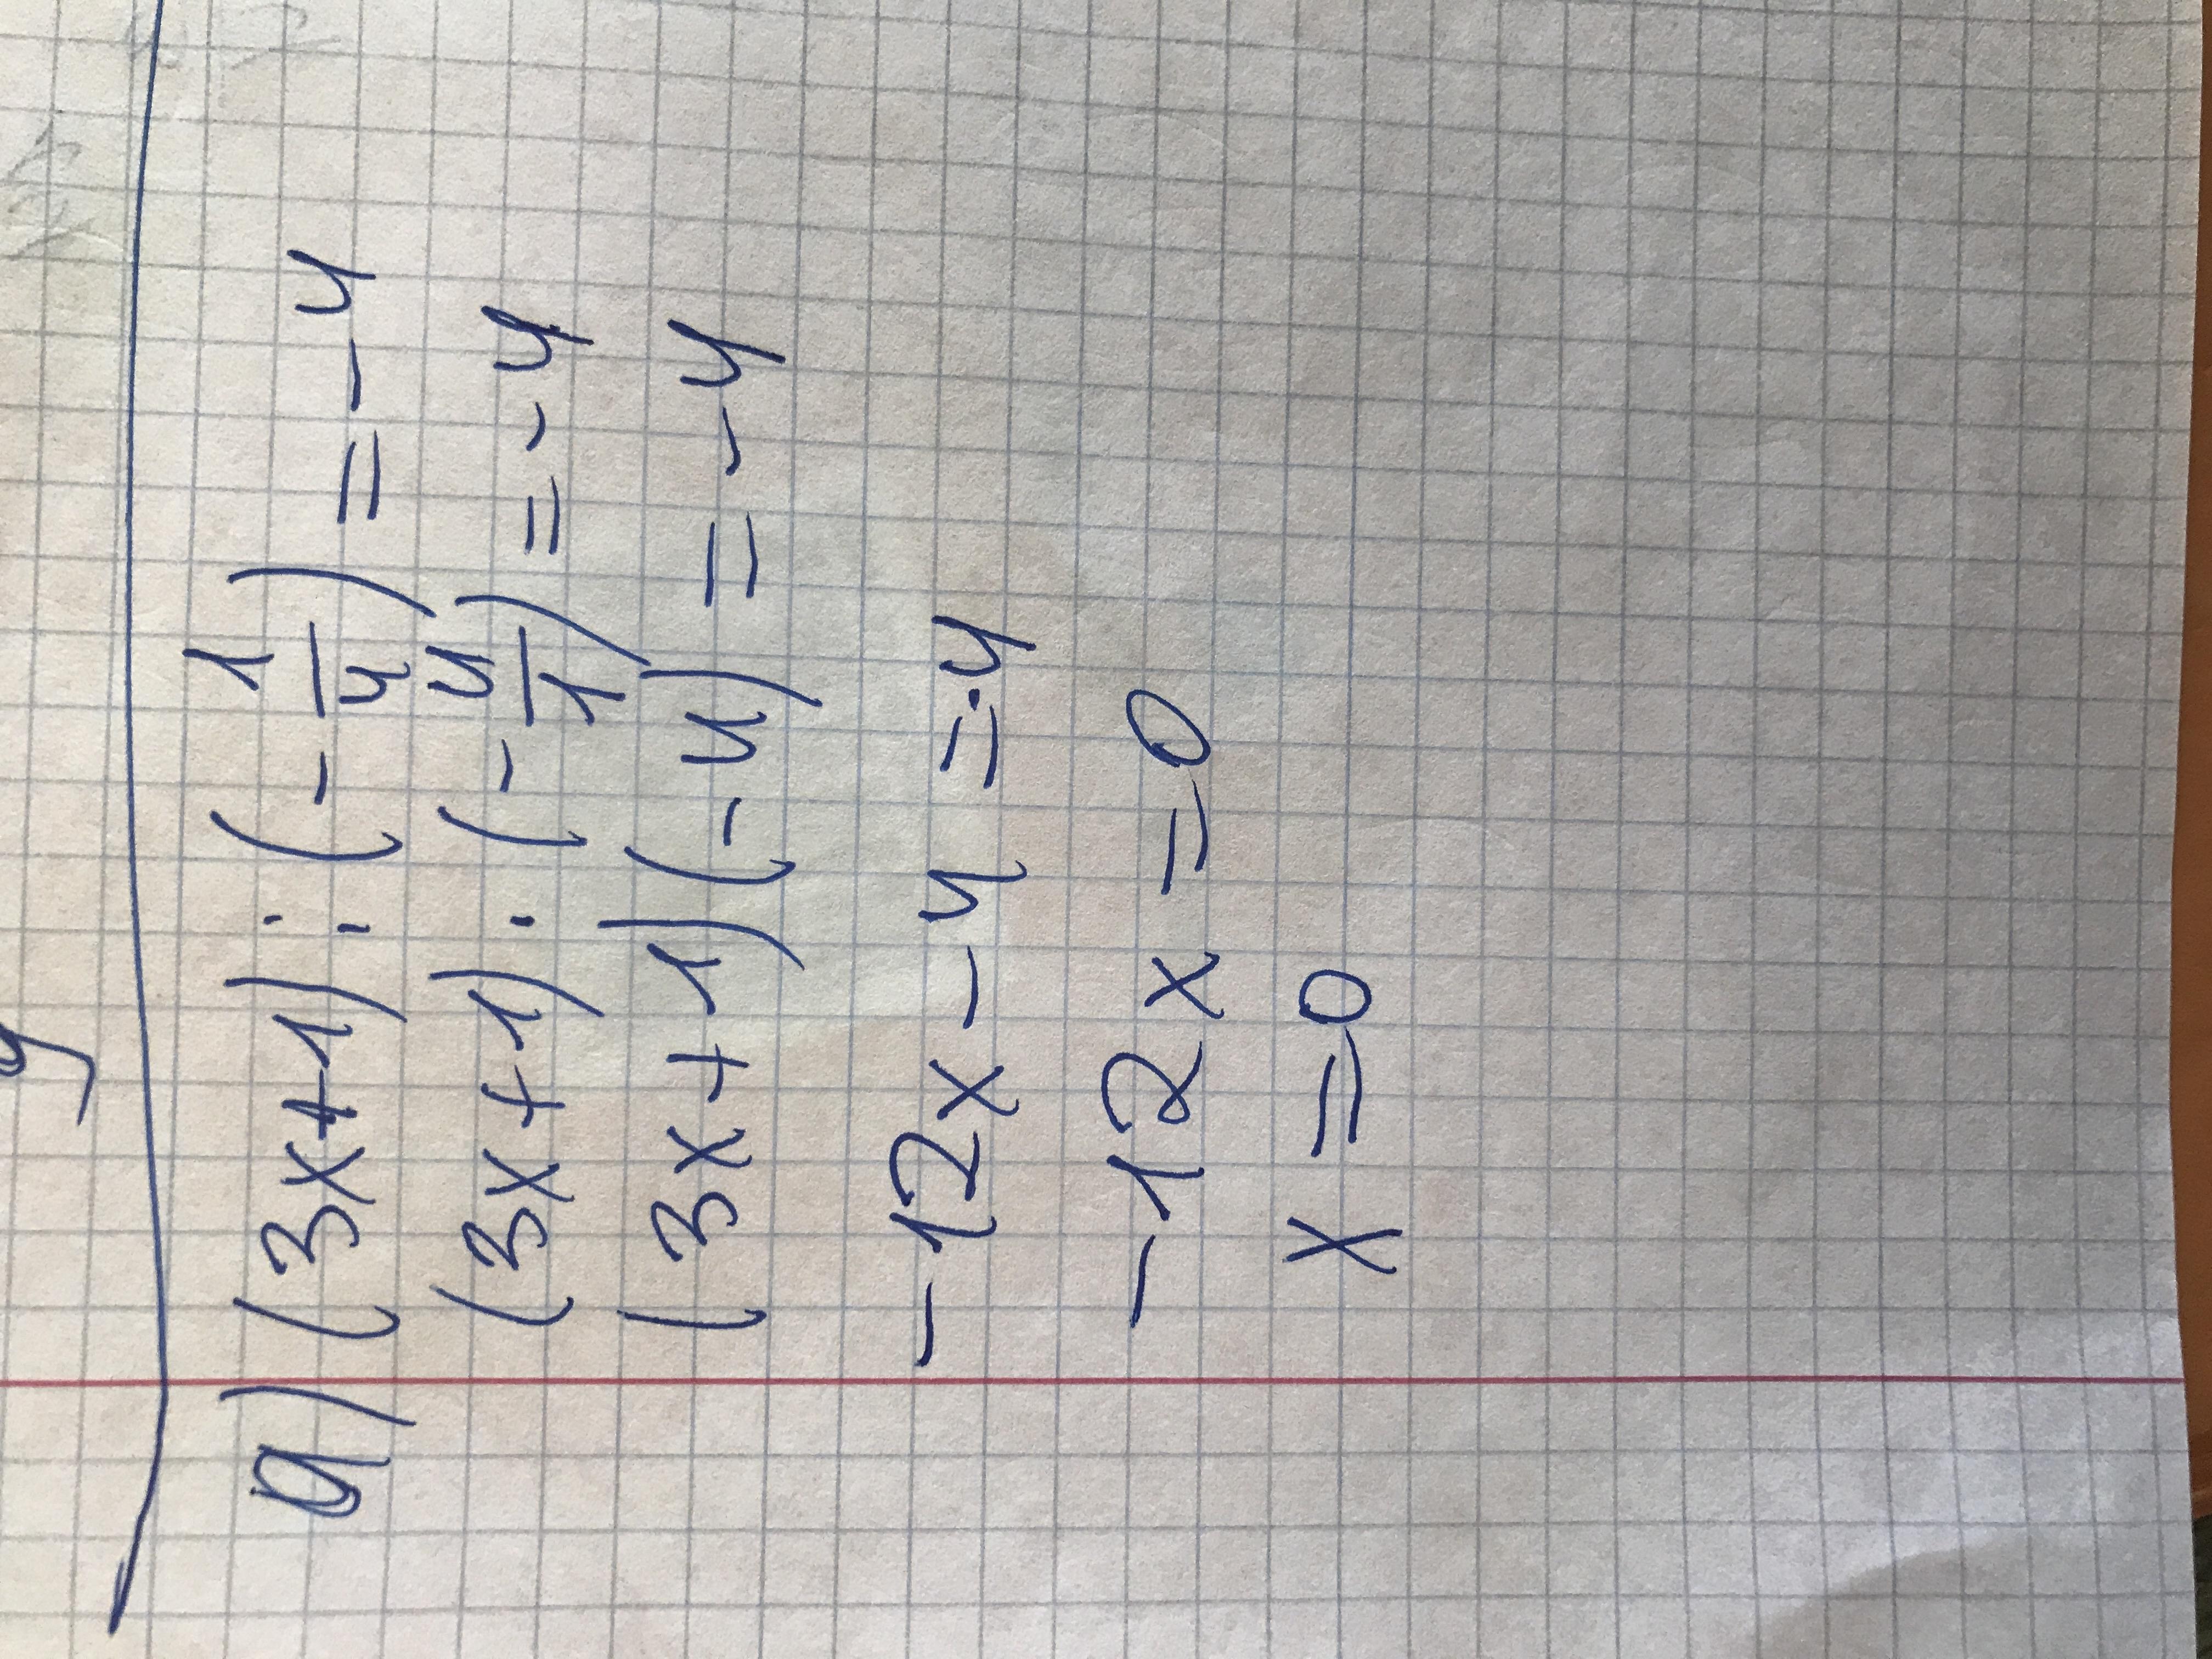 а) (3x+1) : (-1/4) = -4
(3x+1) · (-4/1) = -4
(3x+1)(-4) = -4
-12x-4 = -4
-12x = 0
x = 0